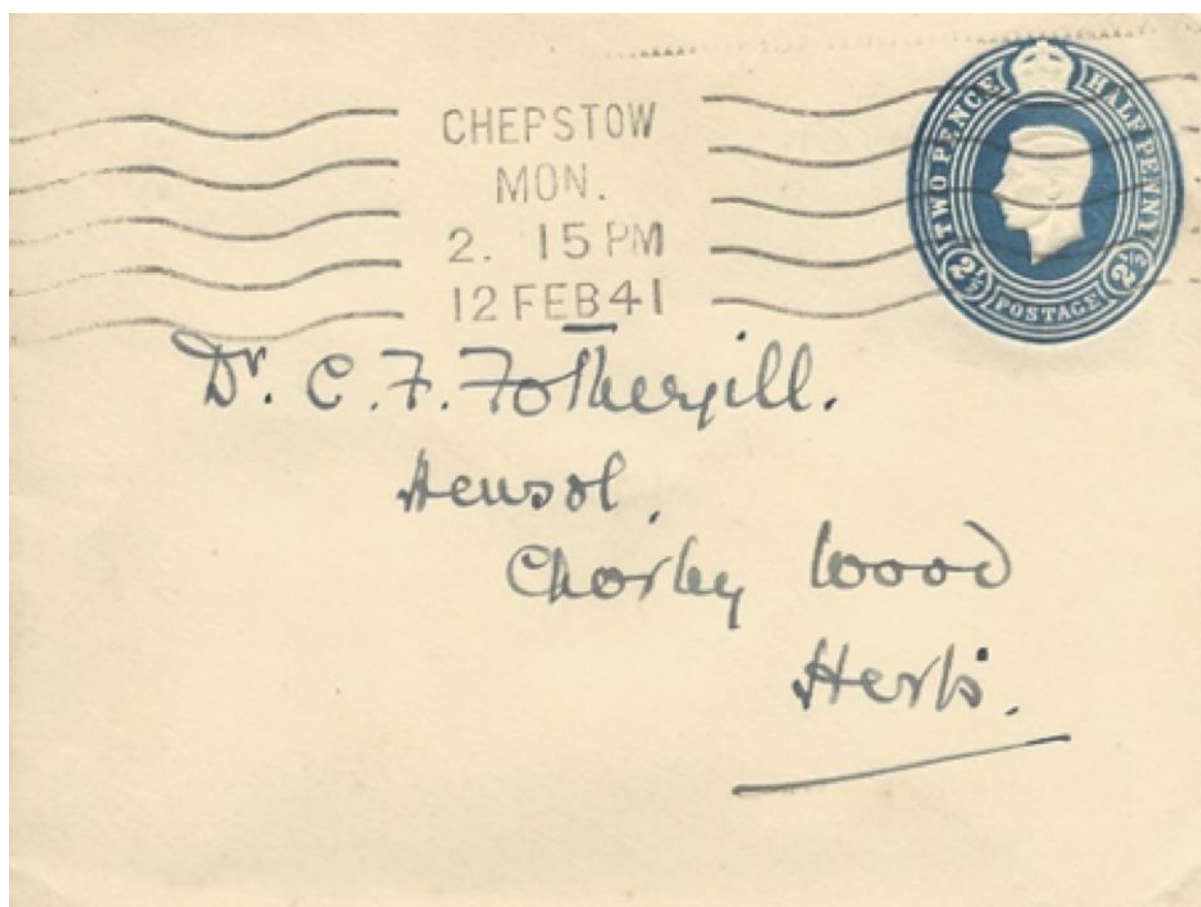 CHEPSTOW
MON.
2. 15 PM
12 FEB 41
TWO PENCE HALF PENNY
2½ POSTAGE 2½
Dr. C. F. Fothergill.
Hensol,
Chorley Wood
Herts.